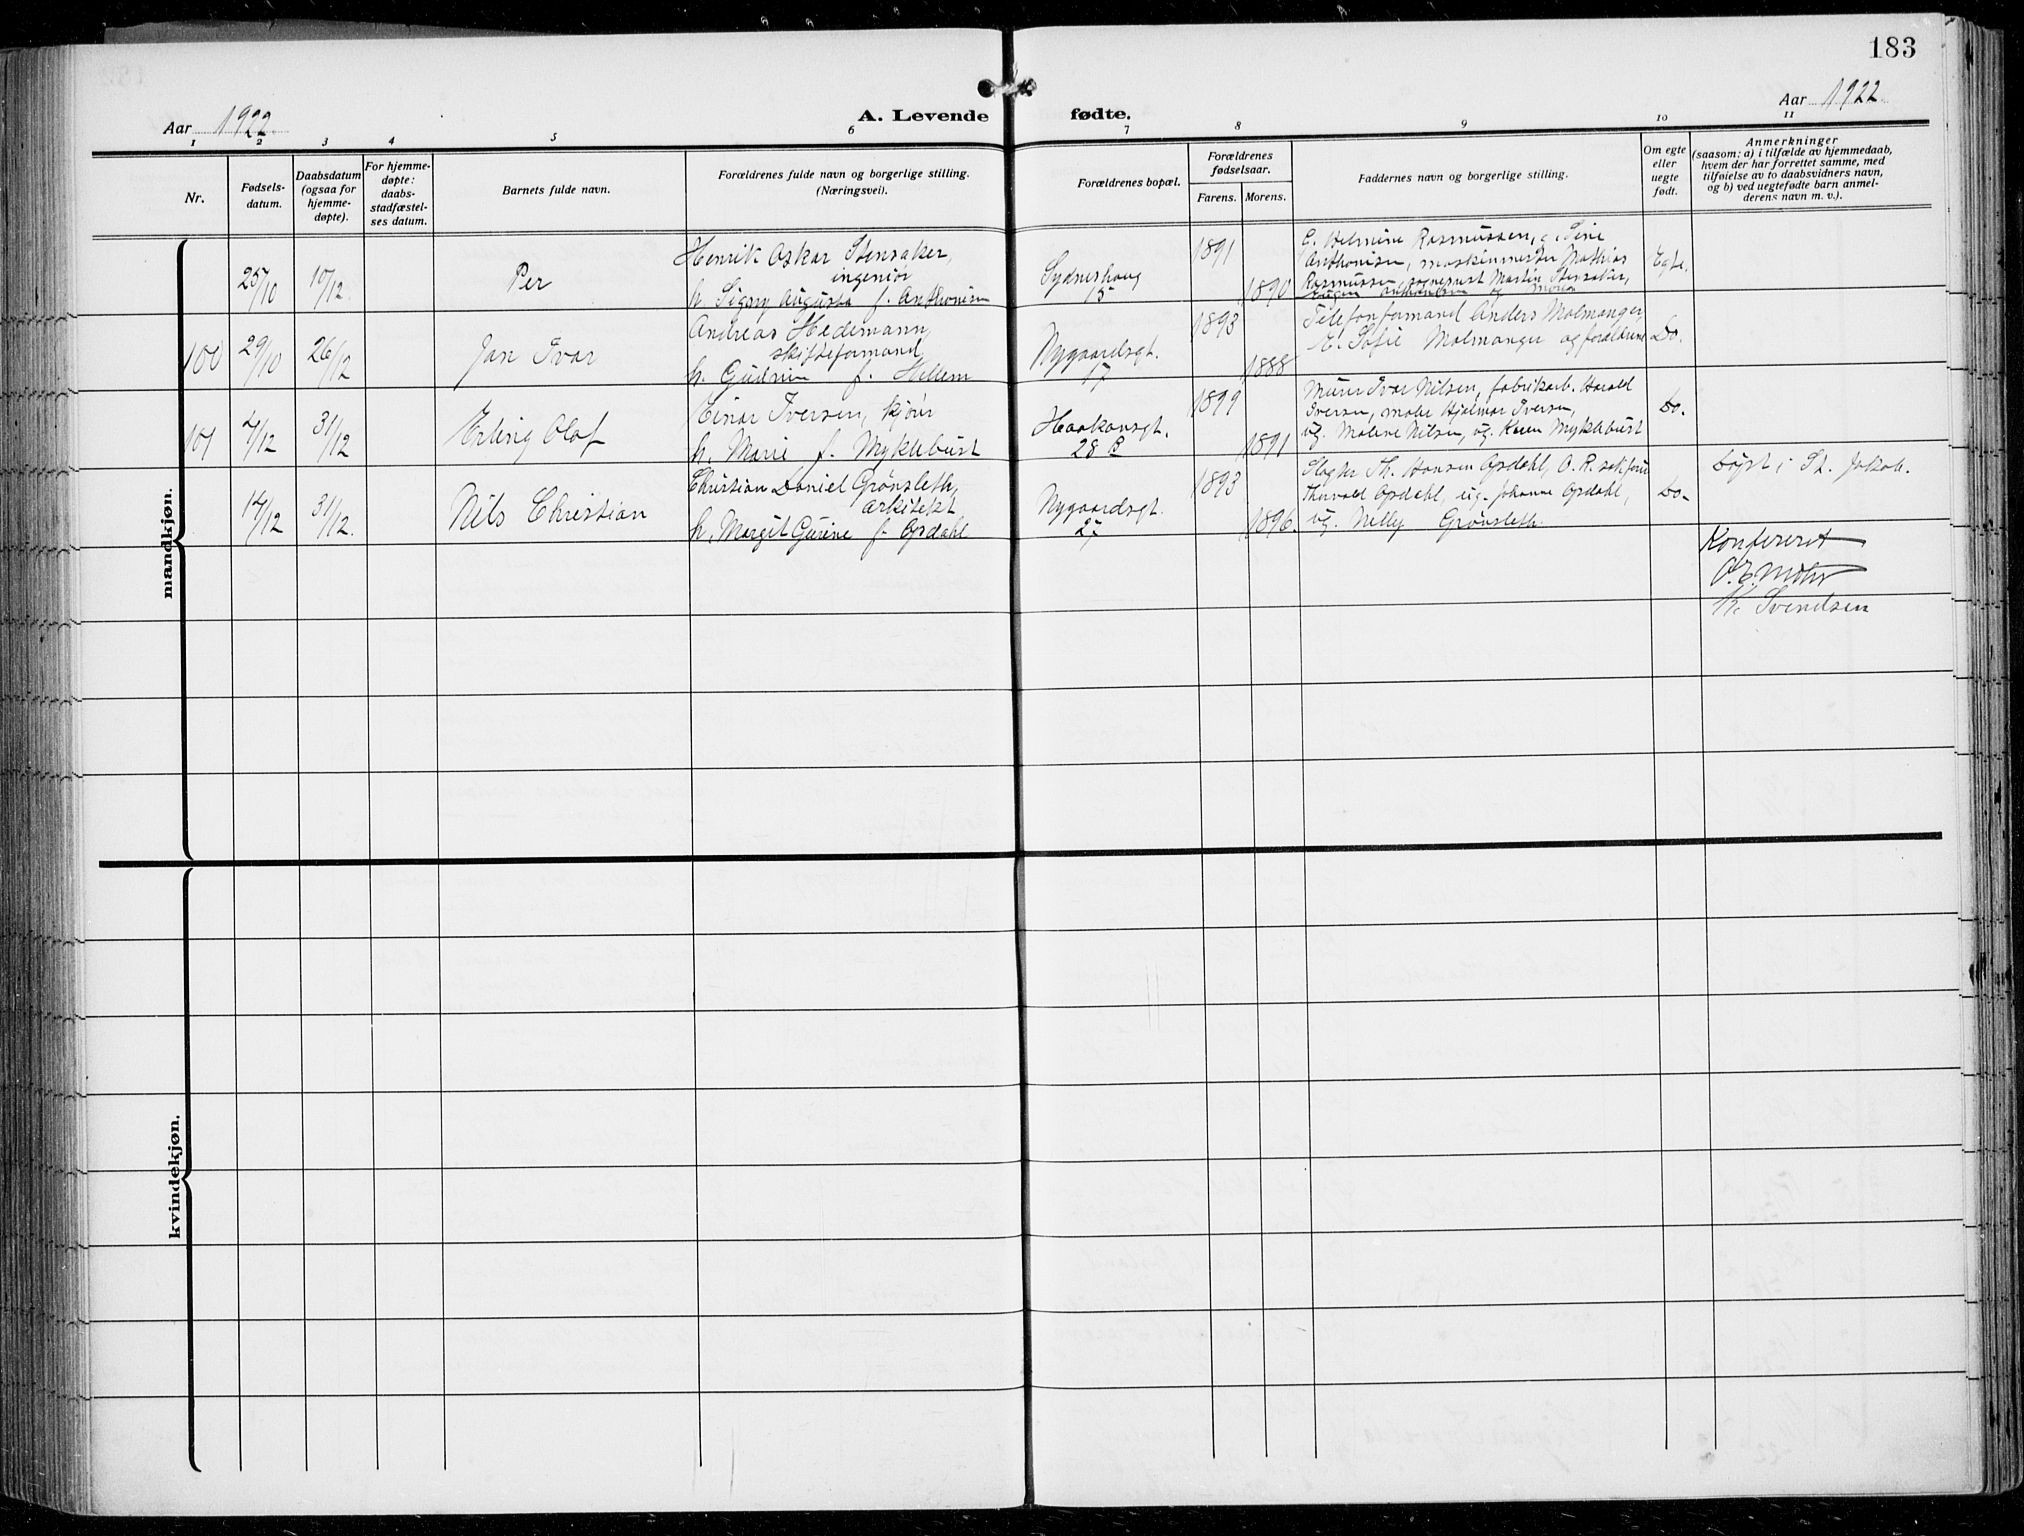 183
Aar 1922.
A. Levende fødte.
Aar 1922.
1 2 3 4 5 6 7 8 9 10 11
Nr.
Fødsels-
datum.
Daabsdatum
(ogsaa for
hjemme-
døpte).
For hjemme-
døpte:
daabs-
stadfæstel-
ses datum.
Barnets fulde navn.
Forældrenes fulde navn og borgerlige stilling.
(Næringsvei).
Forældrenes bopæl.
Forældrenes
fødselsaar.
Farens. Morens.
Faddernes navn og borgerlige stilling.
Om egte
eller
uegte
født.
Anmerkninger
(saasom: a) i tilfælde av hjemmedaab,
hvem der har forrettet samme, med
tilføielse av to daabsvidners navn,
og b) ved uegtefødte barn anmel-
derens navn m. v.).
mandkjøn.
25/10 10/12 Per
Henrik Oskar Stensaker,
ingeniør
h. Signy Augusta f. Anthonisen
Sydneshaug
15
1891
1890
E. Helmine Rasmussen, Sine
Anthonisen, maskinmester Mathias
Rasmussen, Martin Stensaker,
og
Egte.
100 29/10 26/12 Jan Ivar
Andreas Hedemann,
skifteformand
h. Gudrun f. Hellem
Nygaardsgt.
17
1893
1888
Telefonformand Anders Malmanger,
E. Sofie Malmanger og forældrene
Do.
101 4/12 31/12 Erling Olaf
Einar Iversen, kjører
h. Marie f. Myklebust
Haakonsgt.
28 B
1899
1891
Murer Ivar Nilsen, fabrikarb. Harald
Iversen, Hjelmar Iversen,
ug. Malene Nilsen, ug. Karen Myklebust
Do.
14/12 31/12 Nils Christian
Christian Daniel Grønsleth,
arkitekt
h. Margit Gurine f. Opsdahl
Nygaardsgt.
27
1893
1896.
Slagter Th. Hansen Opsdahl, O. R.
Thorvald Opsdahl, ug. Johanne Opsdahl,
ug. Nelly Grønsleth.
Do-
Døpt i St. Jakob.
Konfereret
Svendsen
kvindekjøn.